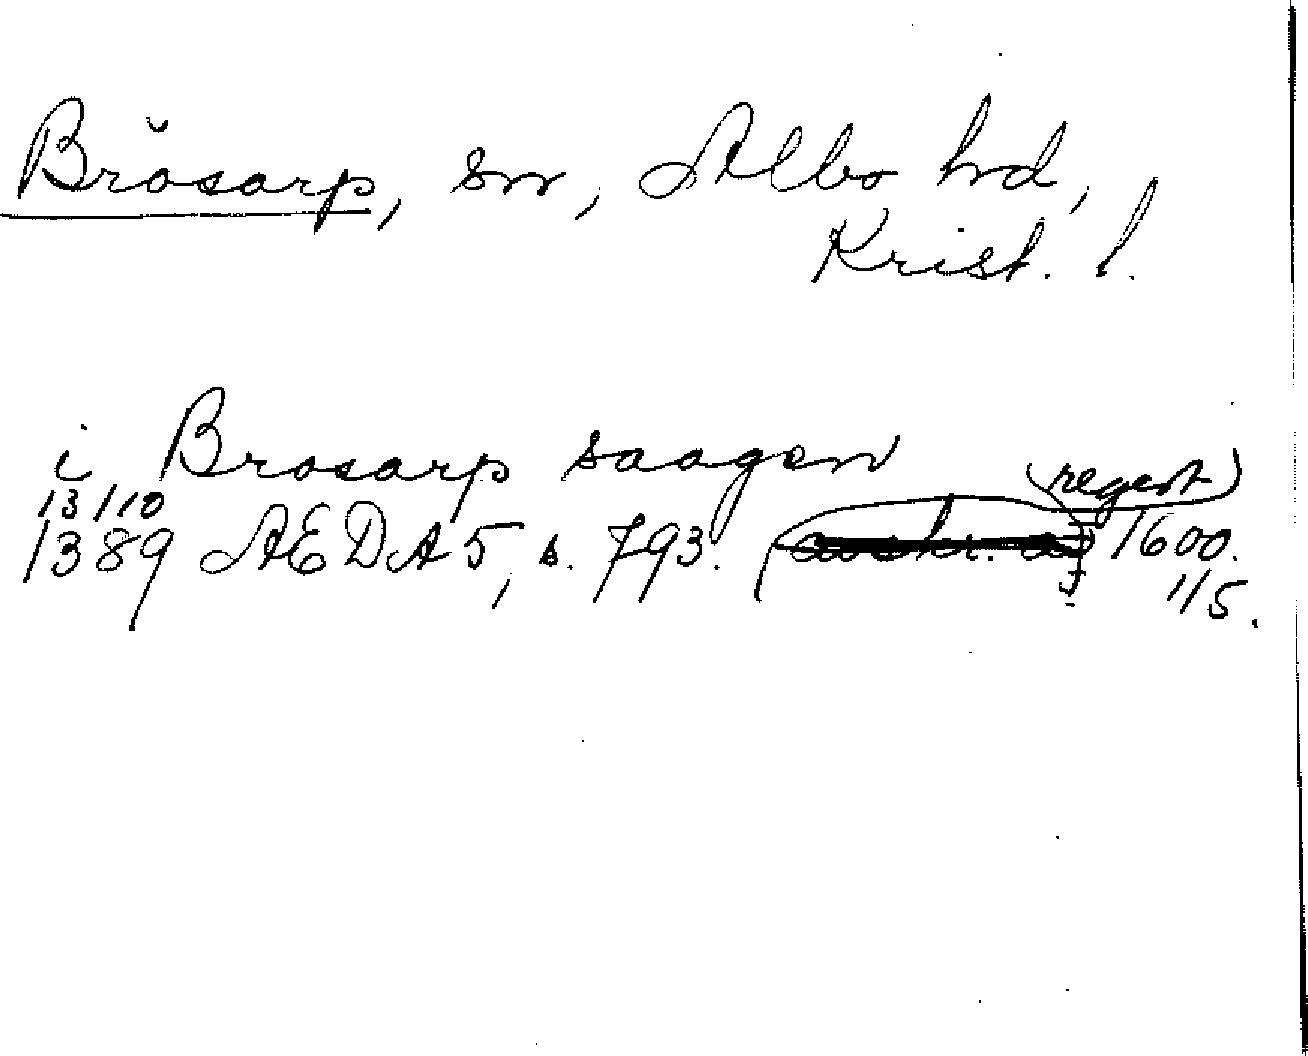 Brösarp, sn, Albo hd,
Krist. l.
i Brosarp saagen
13/10 (regest)
1389 AEDA 5, s. 793. 1600.
1/5.